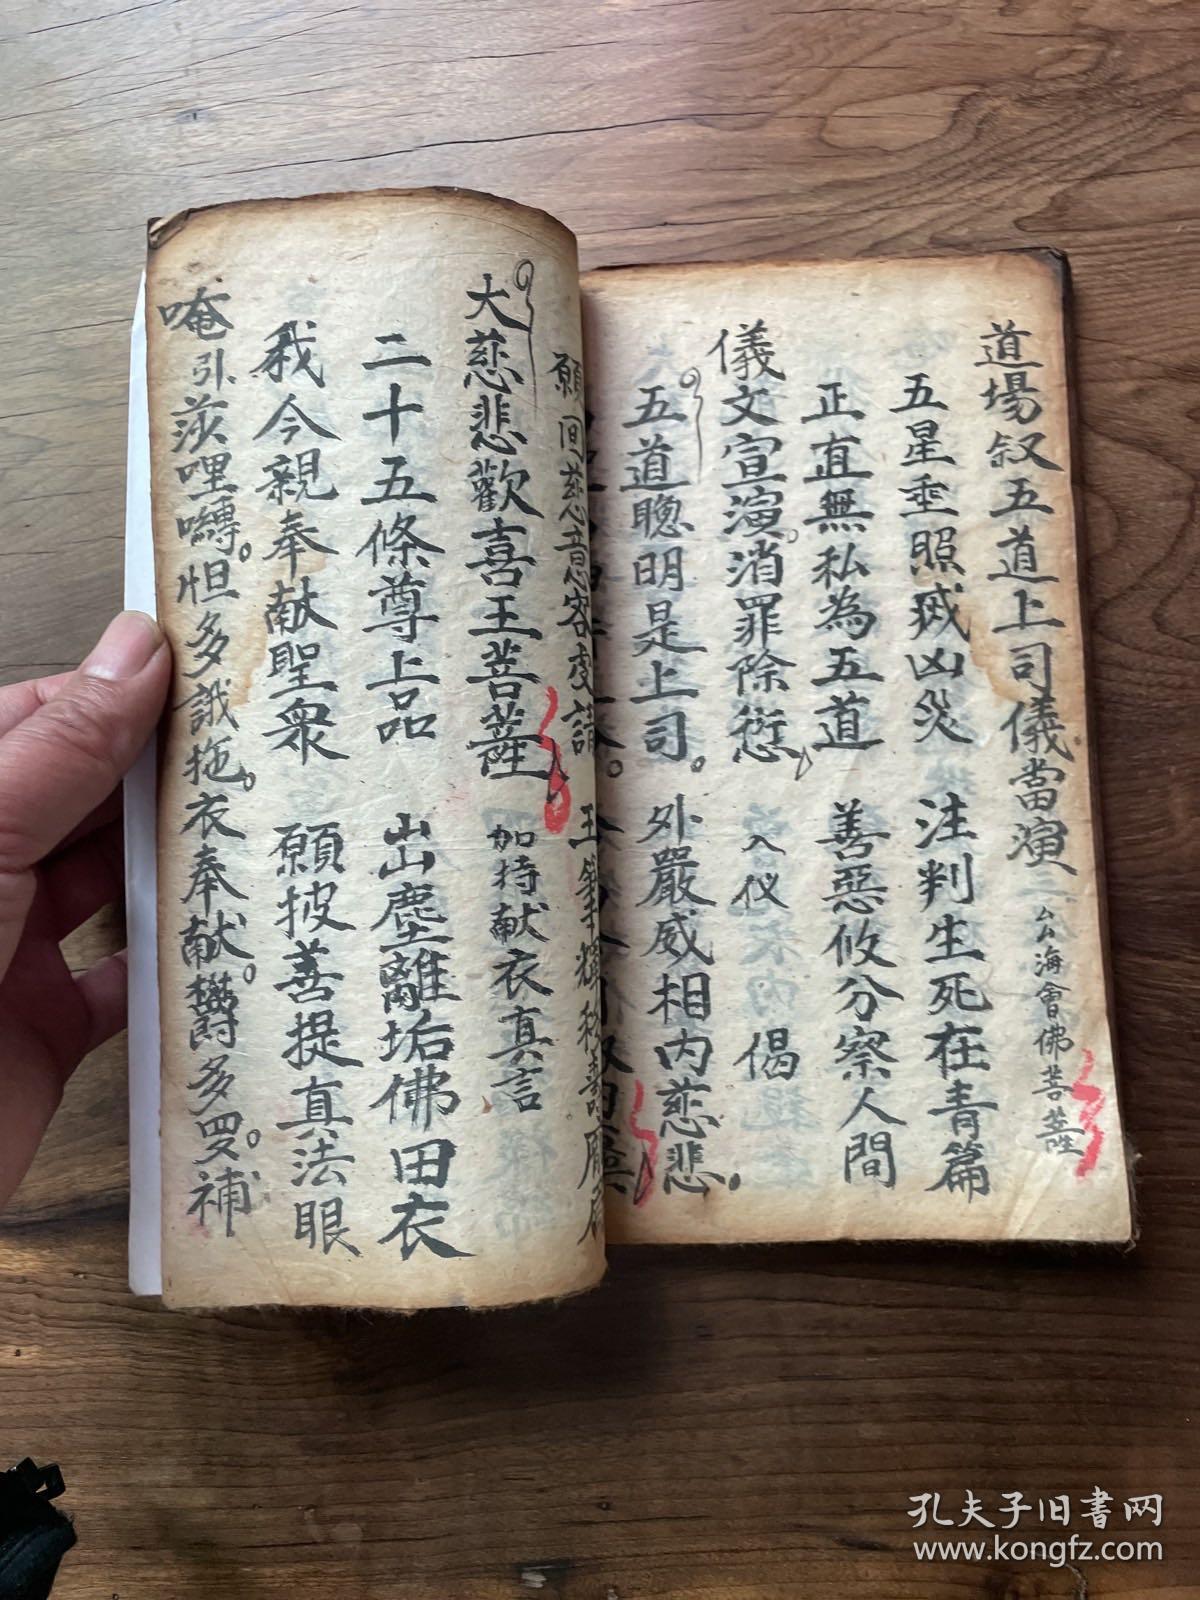 道場叙五道上司儀當演 二厶厶海會佛菩薩
五星垂照滅凶災 注判生死在青篇
正直無私為五道 善惡攸分察人間
儀文宣演消罪除愆 入仪 偈
五道聰明是上司。外嚴威相内慈悲。
願回慈意容虔請
大慈悲歡喜王菩薩 加持献衣真言
二十五條尊上品 出塵離垢佛田衣
我今親奉献聖衆 願披善提真法眼
唵引莎哩嚩。怛多誐拖。衣奉献。欝多罗。補
孔夫子旧書网
www.kongfz.com